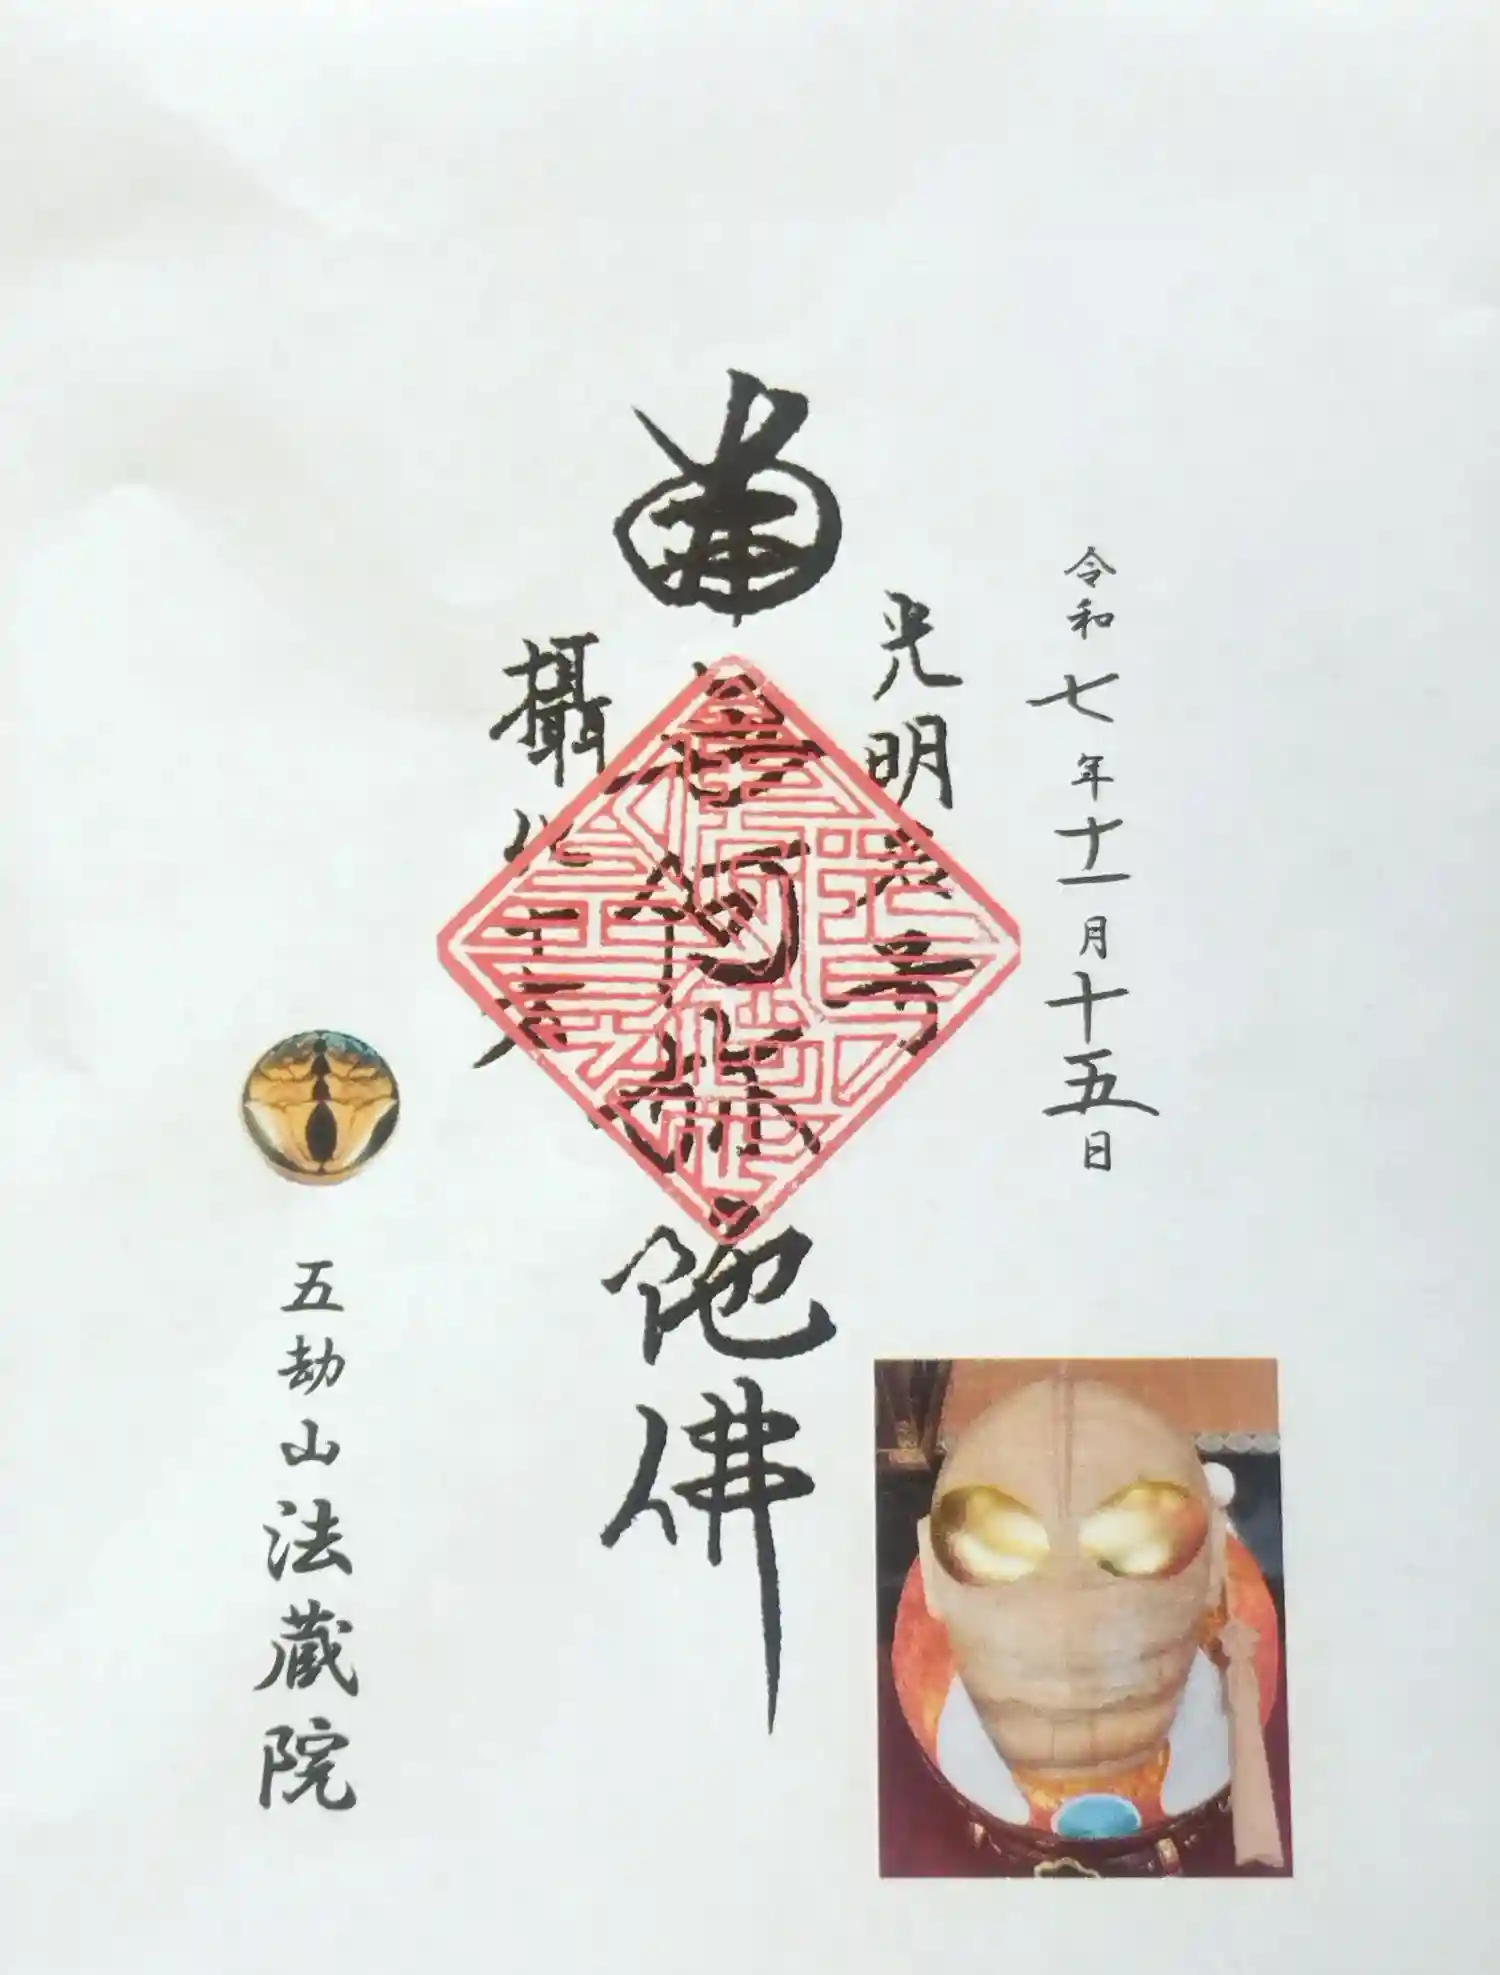 令和七年十一月十五日
光明名号
南無阿弥陀佛
攝化十方
五劫山法蔵院